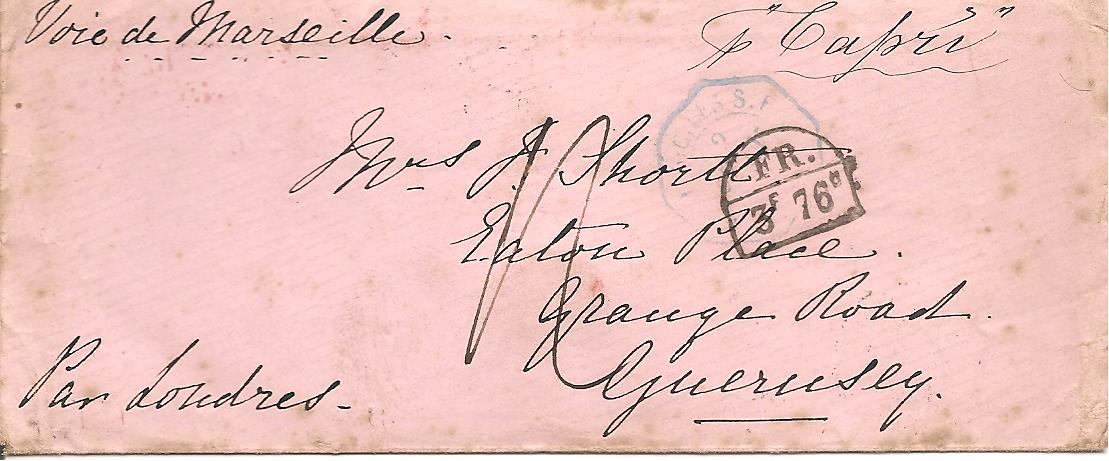 Voie de Marseille.
pr "Capri"
Mrs J. Shortt
Eaton Place.
Grange Road.
Guernsey.
Par Londres-
FR.
3f 76c